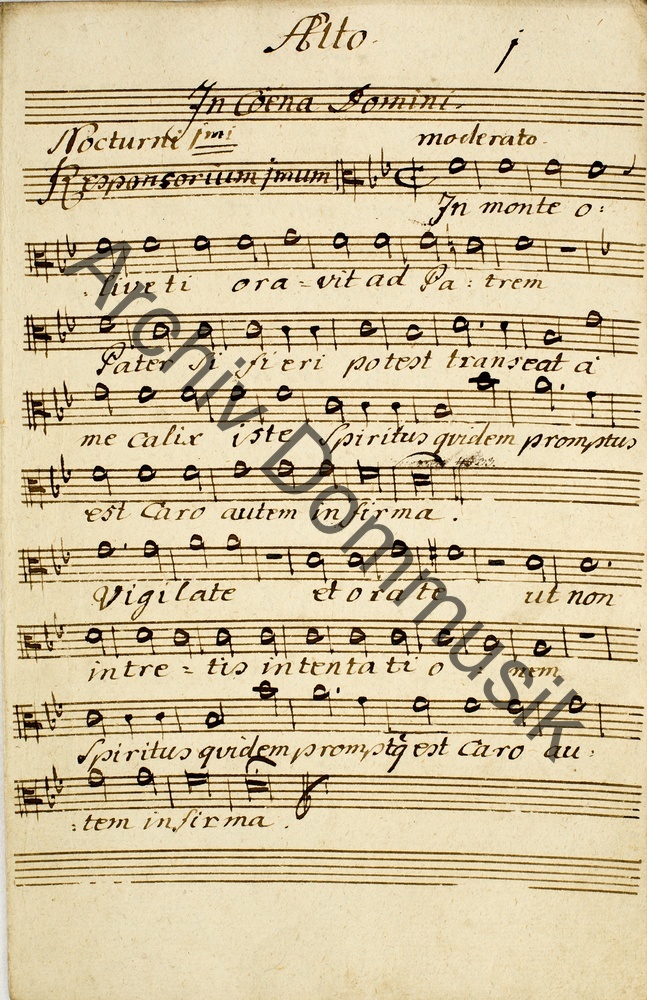 Alto.
1
In Coena Domini.
Nocturni 1mi
moderato.
Responsorium 1mum
In monte o:
:liveti ora-vit ad Pa:trem
Pater si fieri potest transeat a
me calix iste Spiritus quidem promptus
est Caro autem infirma.
Vigilate et orate ut non
intre-tis in tentatio:nem
Spiritus quidem promptq est Caro au:
:tem infirma.
Archiv Dommusik